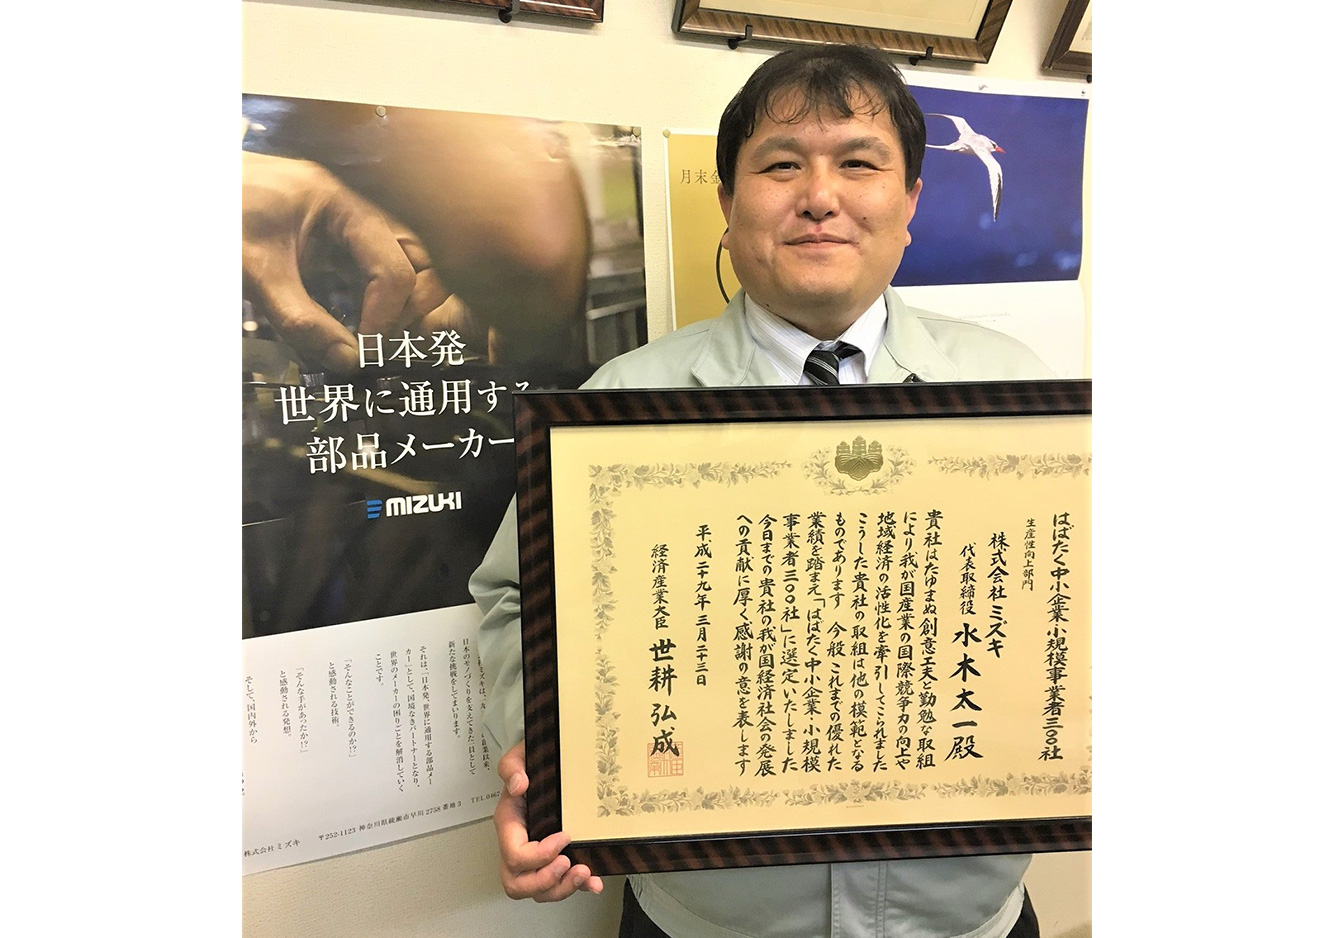 日本発
世界に通用する
部品メーカー
MIZUKI
日本のモノづくりを支えてきた一員として
新たな挑戦をしてまいります。
それは、「日本発、世界に通用する部品メー
カー」として、国境なきパートナーとなり、
世界のメーカーの困りごとを解消していく
ことです。
「そんなことができるのか!?」
と感動される技術。
「そんな手があったか!?」
と感動される発想。
そして、国内外から
株式会社ミズキ
〒252-1123 神奈川県綾瀬市早川 2758 番地 3
TEL.0467-
月末金
はばたく中小企業・小規模事業者三〇〇社
生産性向上部門
株式会社ミズキ
代表取締役 水木太一殿
貴社はたゆまぬ創意工夫と勤勉な取組
により我が国産業の国際競争力の向上や
地域経済の活性化を牽引してこられました
こうした貴社の取組は他の模範となる
ものであります 今般これまでの優れた
業績を踏まえ「はばたく中小企業・小規模
事業者三〇〇社」に選定いたしました
今日までの貴社の我が国経済社会の発展
への貢献に厚く感謝の意を表します
平成二十九年三月二十三日
経済産業大臣 世耕弘成